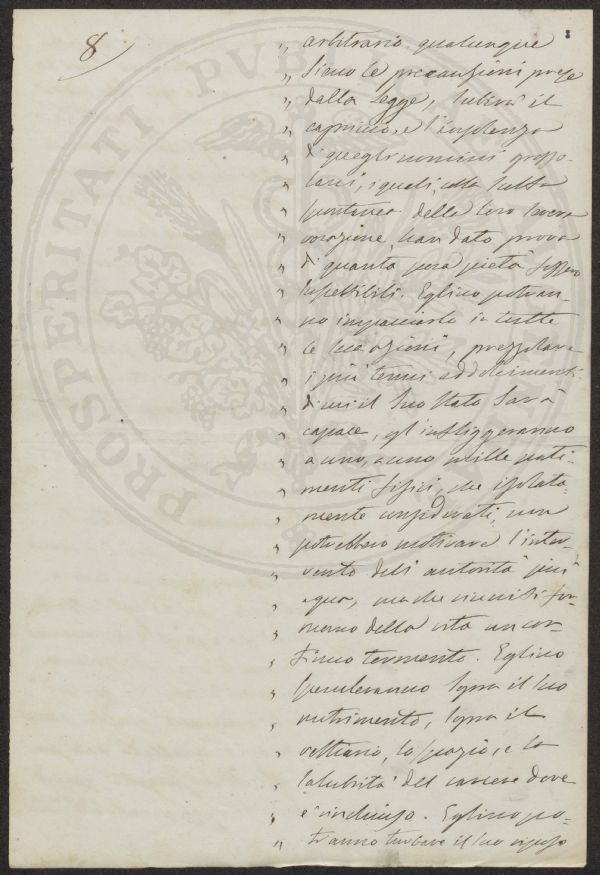 8
„ arbitrario, qualunque
„ sieno le precauzioni prese
„ dalla Legge, subirà il
„ capriccio, e l'insolenza
„ di quegli uomini grosso-
„ lani, i quali, colla scelta
„ spontanea della loro
„ vocazione, han dato prova
„ di quanta poca pietà
„ suscettibili. Eglino potran-
„ no impacciarlo in tutte
„ le sue azioni,
„ i più tenui addolcimenti
„ di cui il suo stato sarà
„ capace, gl'infliggeranno
„ a uno, a uno mille pati-
„ menti fisici, che isolata-
„ mente considerati, non
„ potrebbero motivare l'inter-
„ vento dell'autorità più
„ equa, ma che riuniti for-
„ mano della vita un con-
„ tinuo tormento. Eglino
„ specoleranno sopra il suo
„ nutrimento, sopra il
„ vestiario, lo spazio, e la
„ salubrità del carcere dove
„ è rinchiuso. Eglino po-
„ tranno turbare il suo riposo
PROSPERITATI PUBLICAE